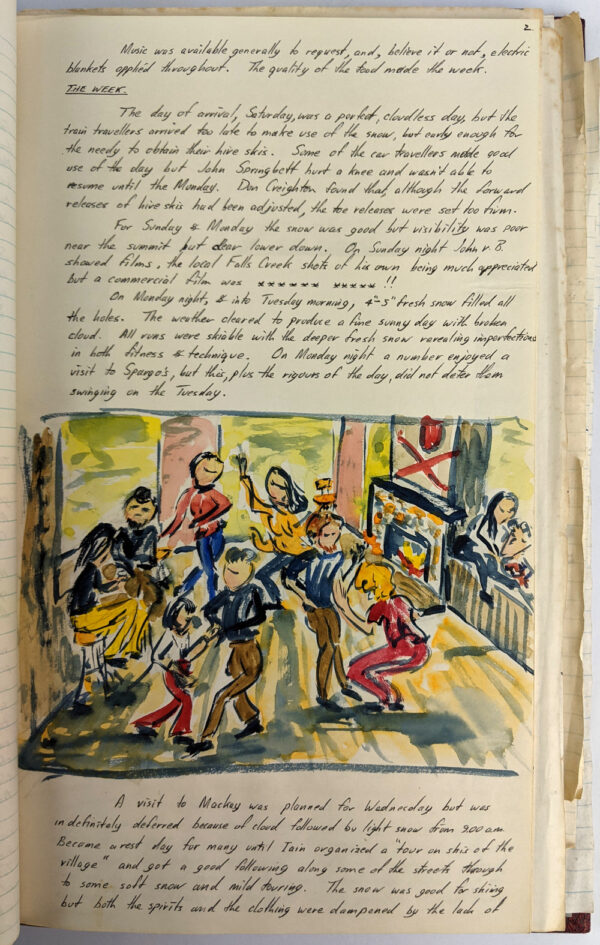 2.
Music was available generally to request, and, believe it or not, electric
blankets applied throughout. The quality of the food made the week.
THE WEEK.
The day of arrival, Saturday, was a perfect, cloudless day, but the
train travellers arrived too late to make use of the snow, but early enough for
the needy to obtain their hire skis. Some of the car travellers made good
use of the day but John Springbett hurt a knee and wasn't able to
resume until the Monday. Don Creighton found that, although the forward
releases of hire skis had been adjusted, the toe releases were set too firm.
For Sunday & Monday the snow was good but visibility was poor
near the summit but clear lower down. On Sunday night John v B.
showed films, the local Falls Creek shots of his own being much appreciated
but a commercial film was ****** ***** !!
On Monday night, & into Tuesday morning, 4"-5" fresh snow filled all
the holes. The weather cleared to produce a fine sunny day with broken
cloud. All runs were skiable with the deeper fresh snow revealing imperfections
in both fitness & technique. On Monday night a number enjoyed a
visit to Spargo's, but this, plus the rigours of the day, did not deter them
swinging on the Tuesday.
A visit to Mackay was planned for Wednesday but was
indefinitely deferred because of cloud followed by light snow from 9.00 a.m.
Became a rest day for many until Iain organized a "tour on skis of the
village" and got a good following along some of the streets through
to some soft snow and mild touring. The snow was good for skiing
but both the spirits and the clothing were dampened by the lack of